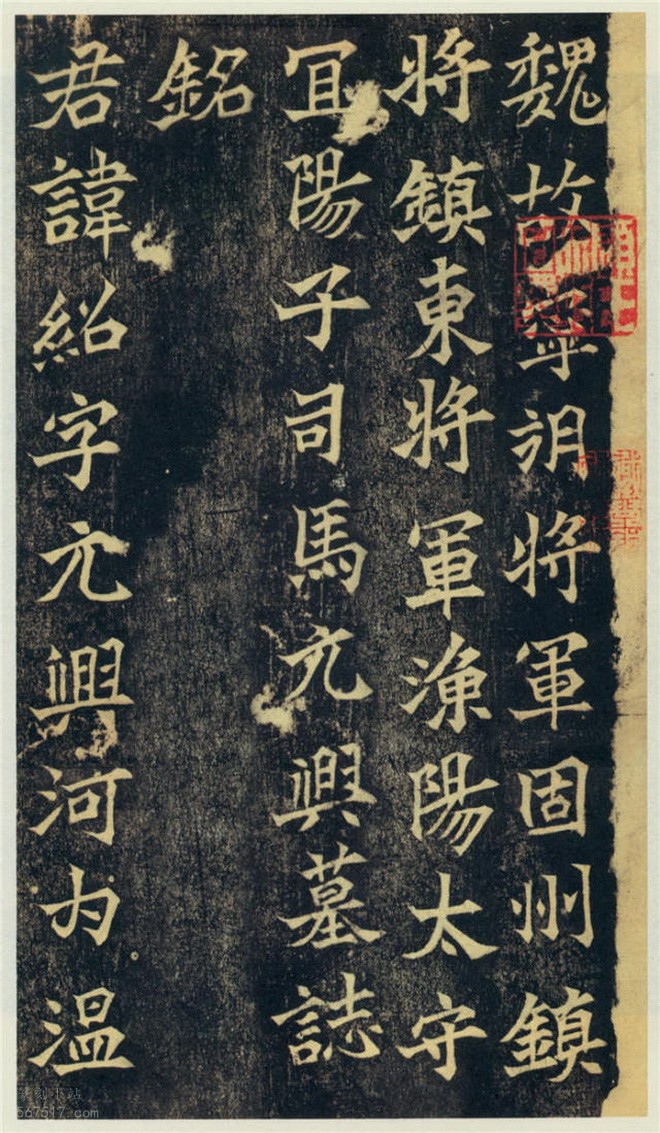 魏故寧朔將軍固州鎮
將鎮東將軍漁陽太守
宜陽子司馬元興墓誌
銘
君諱紹字元興河內溫
567517.com